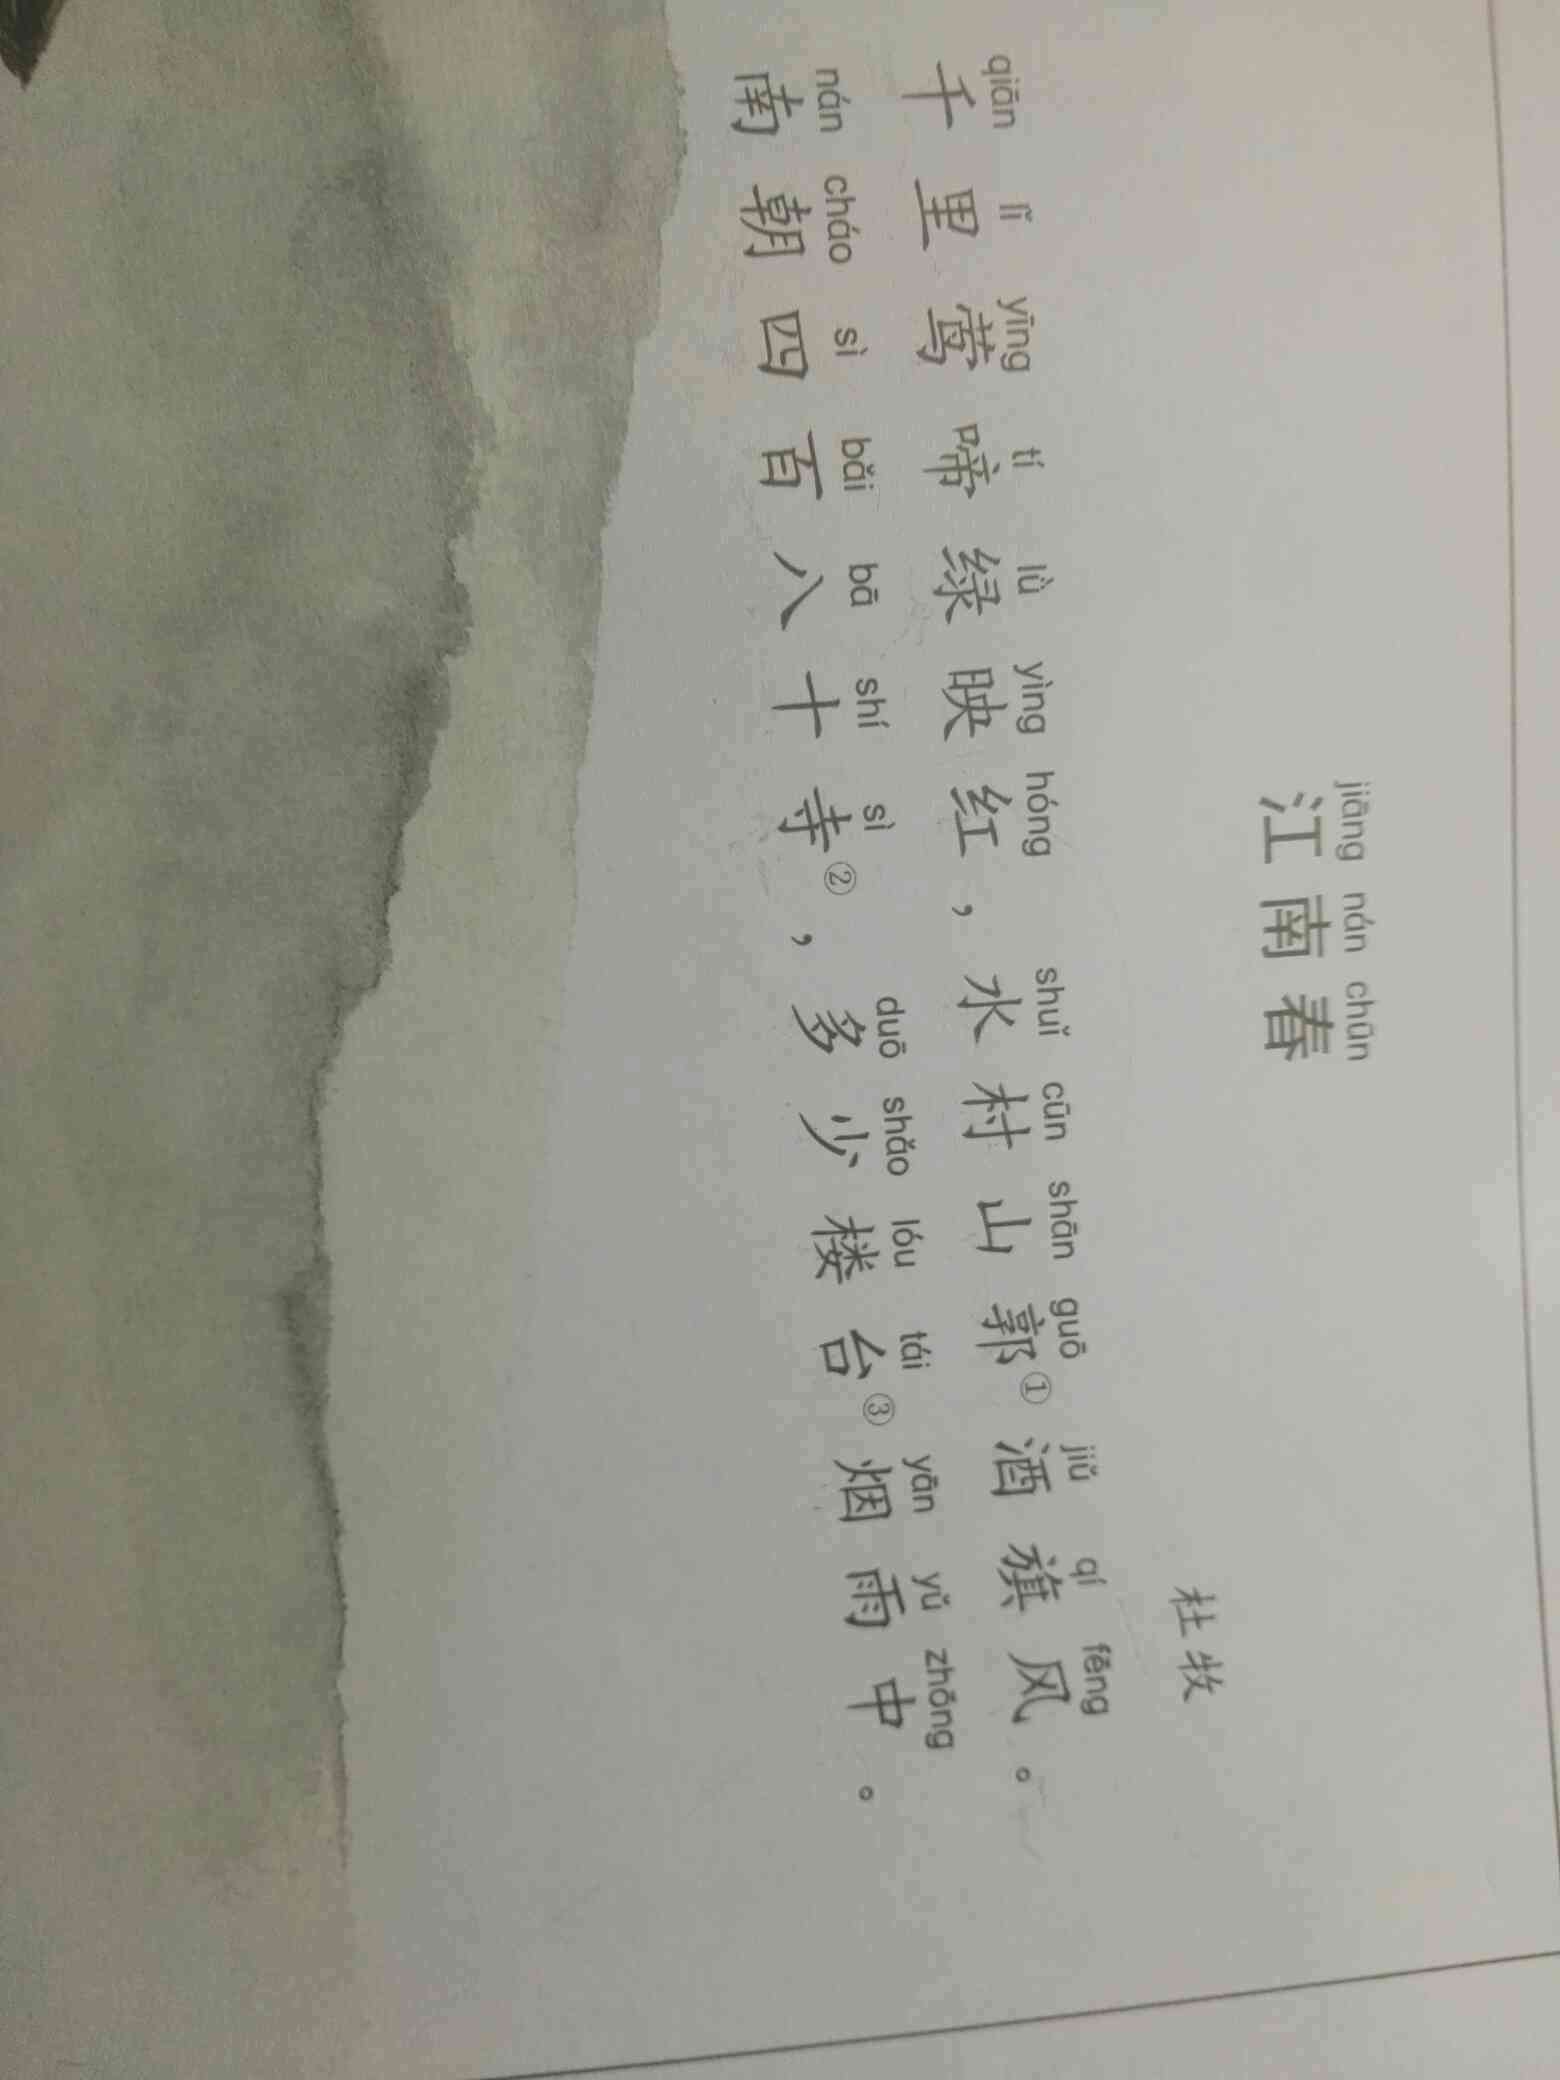 jiāng nán chūn
江南春
杜牧
qiān lǐ yīng tí lǜ yìng hóng shuǐ cūn shān guō jiǔ qí fēng
千里莺啼绿映红，水村山郭①酒旗风。
nán cháo sì bǎi bā shí sì duō shǎo lóu tái yān yǔ zhōng
南朝四百八十寺②，多少楼台③烟雨中。